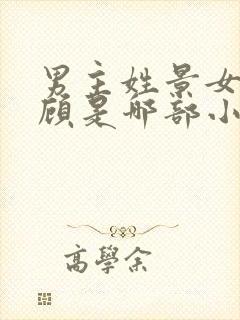 男主姓景女
顾是哪部小
高學余